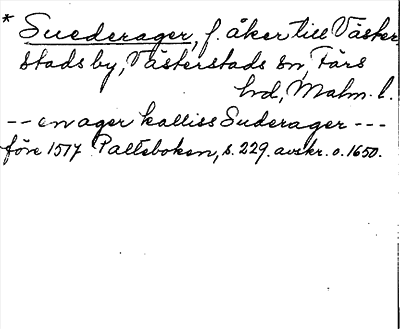 * Suederager, f. åker till Väster-
stads by, Västerstads sn, Färs
hd, Malm. l.
-- en ager kalliss Suderager ---
före 1517 Palteboken, s. 229. avskr. o. 1650.